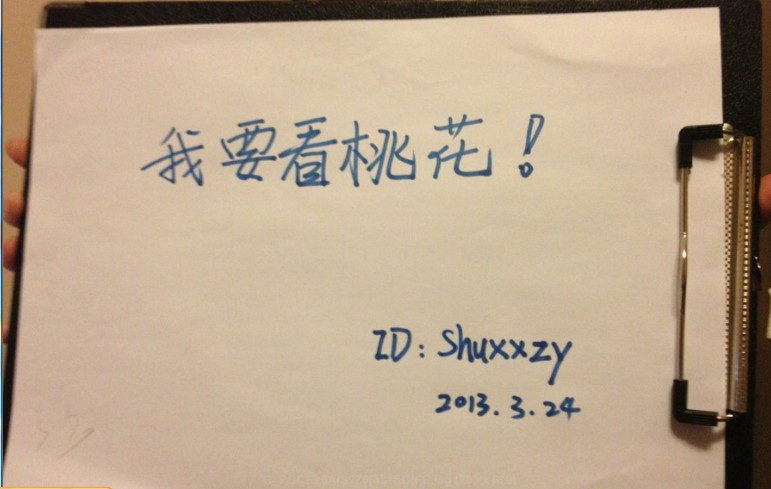 我要看桃花！
ID：Shuxxzy
2013.3.24